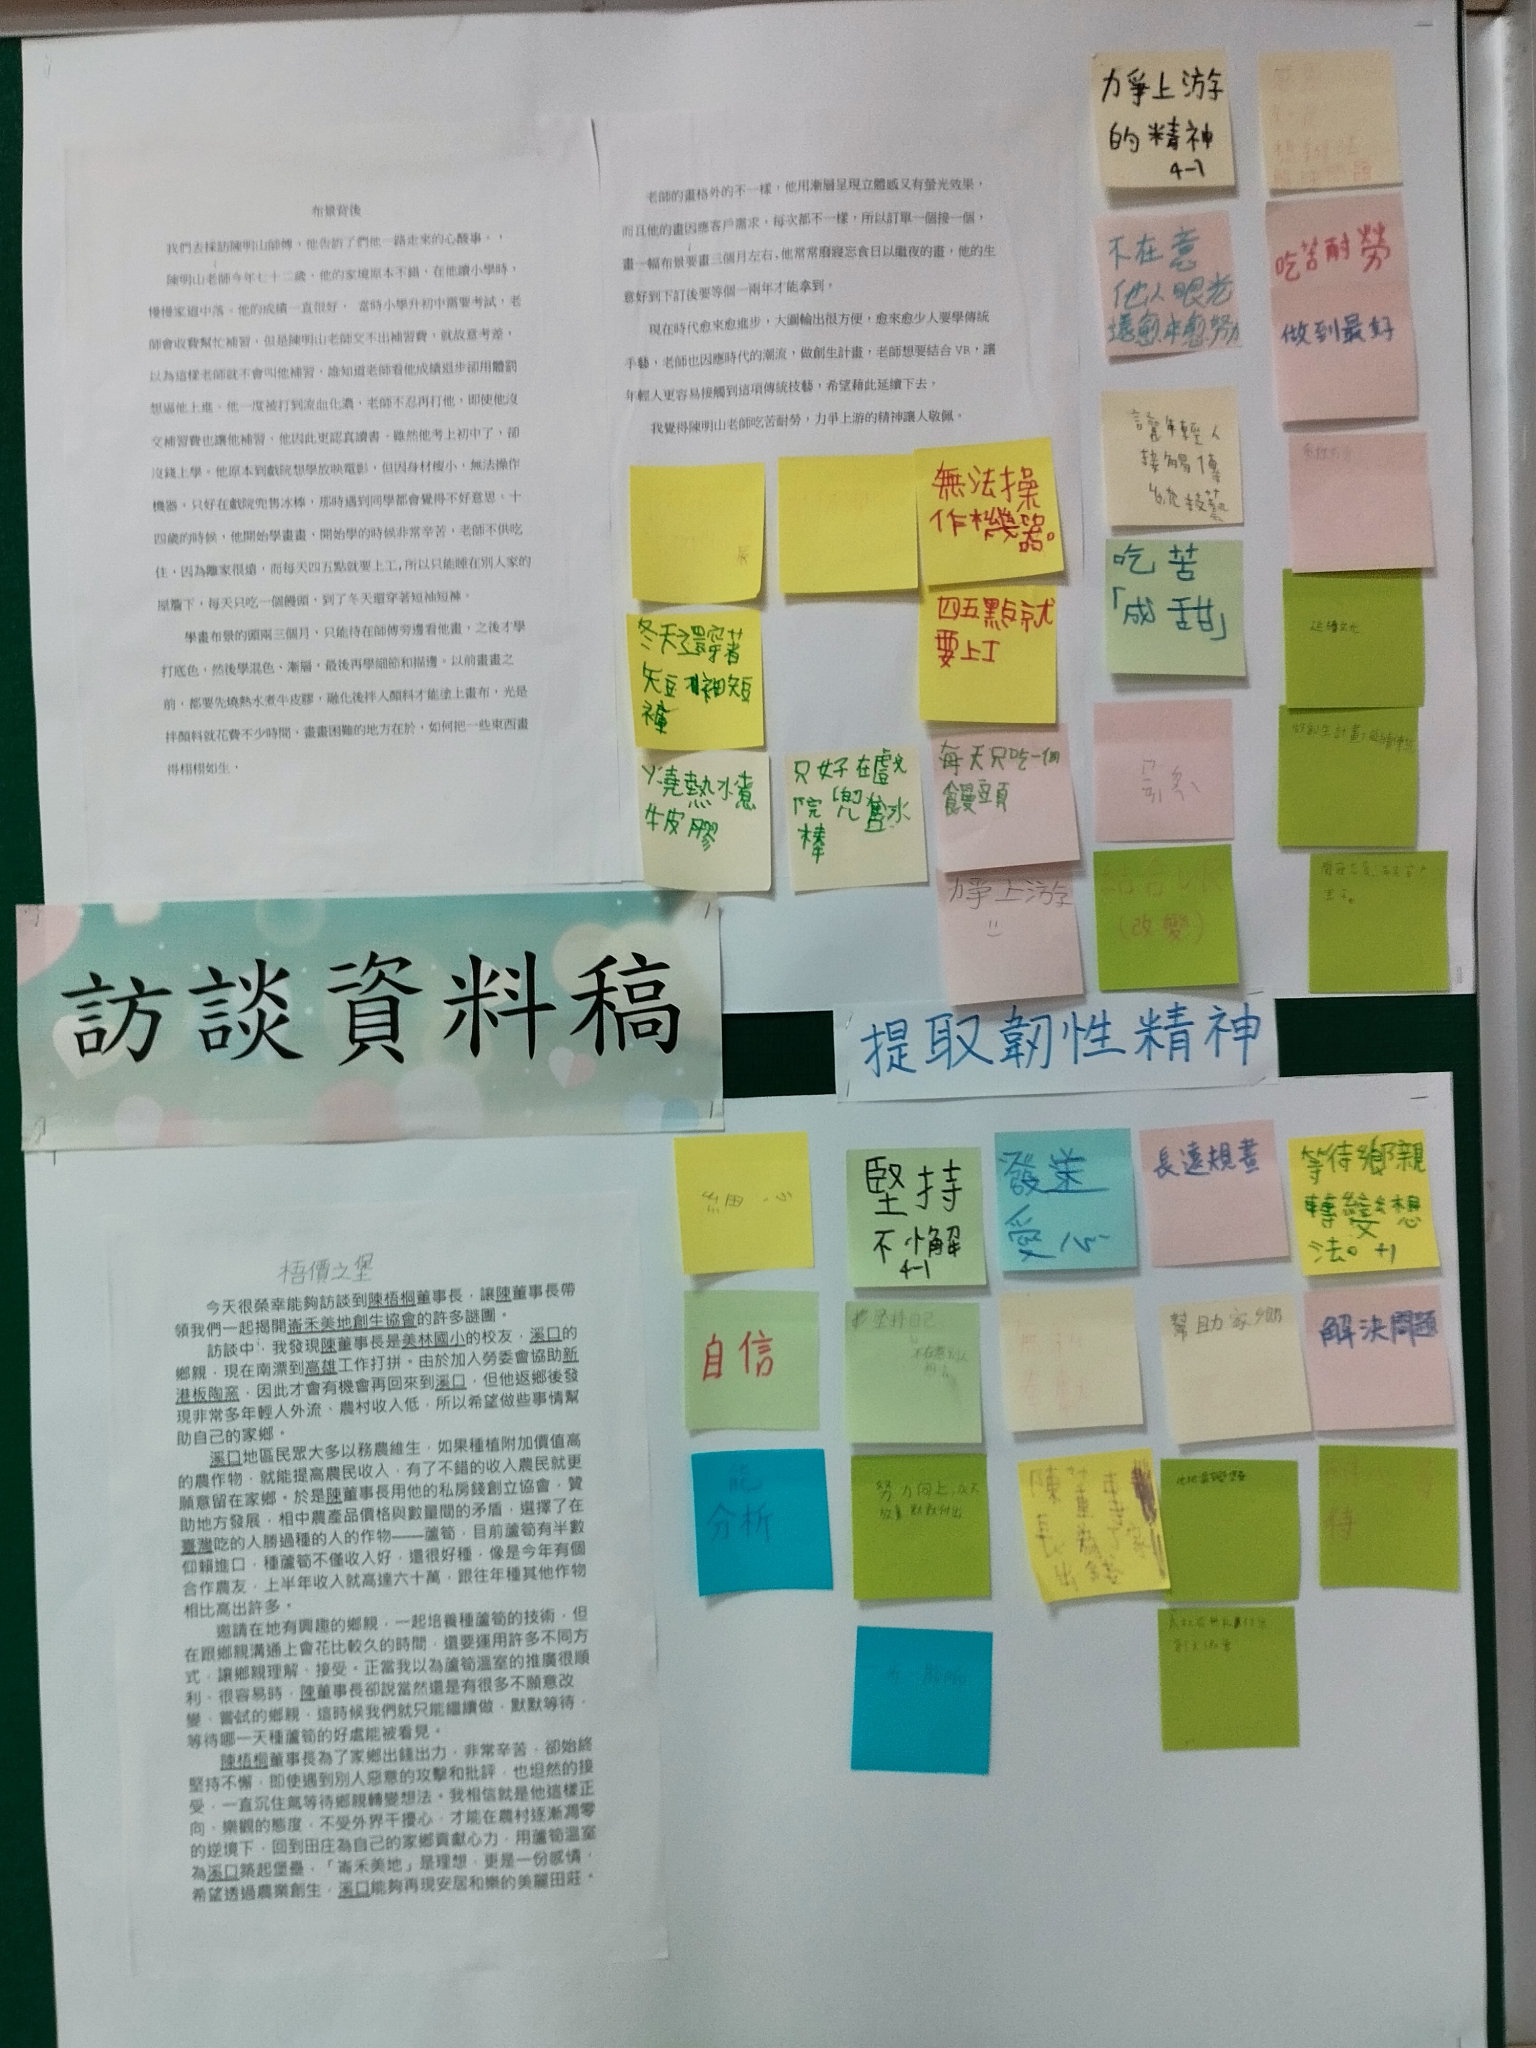 布景背後
我們去採訪陳明山師傅，他告訴了們他一路走來的心酸事。，
陳明山老師今年七十二歲，他的家境原本不錯，在他讀小學時，
慢慢家道中落。他的成績一直很好， 當時小學升初中需要考試，老
師會收費幫忙補習，但是陳明山老師交不出補習費，就故意考差，
以為這樣老師就不會叫他補習，誰知道老師看他成績退步卻用體罰
想逼他上進。他一度被打到流血化濃，老師不忍再打他，即使他沒
交補習費也讓他補習，他因此更認真讀書。雖然他考上初中了，卻
沒錢上學。他原本到戲院想學放映電影，但因身材瘦小，無法操作
機器，只好在戲院兜售冰棒，那時遇到同學都會覺得不好意思。十
四歲的時候，他開始學畫畫，開始學的時候非常辛苦，老師不供吃
住，因為離家很遠，而每天四五點就要上工,所以只能睡在別人家的
屋簷下，每天只吃一個饅頭，到了冬天還穿著短袖短褲。
學畫布景的頭兩三個月，只能待在師傅旁邊看他畫，之後才學
打底色，然後學混色、漸層，最後再學細節和描邊。以前畫畫之
前，都要先燒熱水煮牛皮膠，融化後拌入顏料才能塗上畫布，光是
拌顏料就花費不少時間，畫畫困難的地方在於，如何把一些東西畫
得栩栩如生，
老師的畫格外的不一樣，他用漸層呈現立體感又有螢光效果，
而且他的畫因應客戶需求，每次都不一樣，所以訂單一個接一個，
畫一幅布景要畫三個月左右,他常常廢寢忘食日以繼夜的畫，他的生
意好到下訂後要等個一兩年才能拿到。
現在時代愈來愈進步，大圖輸出很方便，愈來愈少人要學傳統
手藝，老師也因應時代的潮流，做創生計畫，老師想要結合 VR，讓
年輕人更容易接觸到這項傳統技藝，希望藉此延續下去。
我覺得陳明山老師吃苦耐勞，力爭上游的精神讓人敬佩。
力爭上游
的精神
4-1
不在意
他人眼光
吃苦耐勞
做到最好
讓年輕人
接觸傳
統技藝
無法操
作機器。
四五點就
要上工
吃苦
「成甜」
延續文化
冬天還穿著
短袖短
褲
燒熱水煮
牛皮膠
只好在戲
院兜售冰
棒
每天只吃一個
饅頭
力爭上游
結合VR
(改變)
訪談資料稿
提取韌性精神
梧價之堡
今天很榮幸能夠訪談到陳梧桐董事長，讓陳董事長帶
領我們一起揭開崙禾美地創生協會的許多謎團。
訪談中，我發現陳董事長是美林國小的校友，溪口的
鄉親，現在南漂到高雄工作打拼。由於加入勞委會協助新
港板陶窯，因此才會有機會再回來到溪口，但他返鄉後發
現非常多年輕人外流、農村收入低，所以希望做些事情幫
助自己的家鄉。
溪口地區民眾大多以務農維生，如果種植附加價值高
的農作物，就能提高農民收入，有了不錯的收入農民就更
願意留在家鄉。於是陳董事長用他的私房錢創立協會，贊
助地方發展，相中農產品價格與數量間的矛盾，選擇了在
臺灣吃的人勝過種的人的作物——蘆筍，目前蘆筍有半數
仰賴進口，種蘆筍不僅收入好，還很好種，像是今年有個
合作農友，上半年收入就高達六十萬，跟往年種其他作物
相比高出許多。
邀請在地有興趣的鄉親，一起培養種蘆筍的技術，但
在跟鄉親溝通上會花比較久的時間，還要運用許多不同方
式，讓鄉親理解、接受。正當我以為蘆筍溫室的推廣很順
利，很容易時，陳董事長卻說當然還是有很多不願意改
變、嘗試的鄉親，這時候我們就只能繼續做，默默等待，
等待哪一天種蘆筍的好處能被看見。
陳梧桐董事長為了家鄉出錢出力，非常辛苦，卻始終
堅持不懈，即使遇到別人惡意的攻擊和批評，也坦然的接
受，一直沉住氣等待鄉親轉變想法。我相信就是他這樣正
向、樂觀的態度，不受外界干擾心，才能在農村逐漸凋零
的逆境下，回到田庄為自己的家鄉貢獻心力，用蘆筍溫室
為溪口築起堡壘，「崙禾美地」是理想，更是一份感情，
希望透過農業創生，溪口能夠再現安居和樂的美麗田莊。
細心
堅持
不懈
4-1
發柴
愛心
長遠規畫
等待鄉親
轉變想
法。+1
自信
堅持自己
幫助家鄉
解決問題
能
分析
努力向上